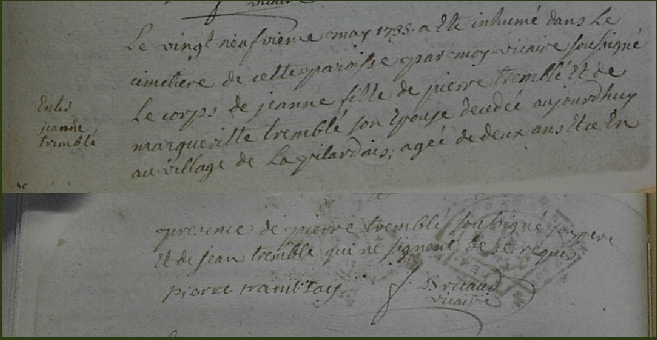 Le vingt neufvieme may 1735 a ete inhumé dans Le
cimetiere de cette paroisse par moy vicaire soussigné
Le corps de jeanne fille de pierre tremblé et de
margueritte tremblé son epouse decedée aujourdhuy
au village de La agée de deux ans Et en
jeanne
tremblé
presence de pierre tremblé soussigné son pere
et de jean tremblé qui ne signent de ce requis
pierre tramblay
vicaire